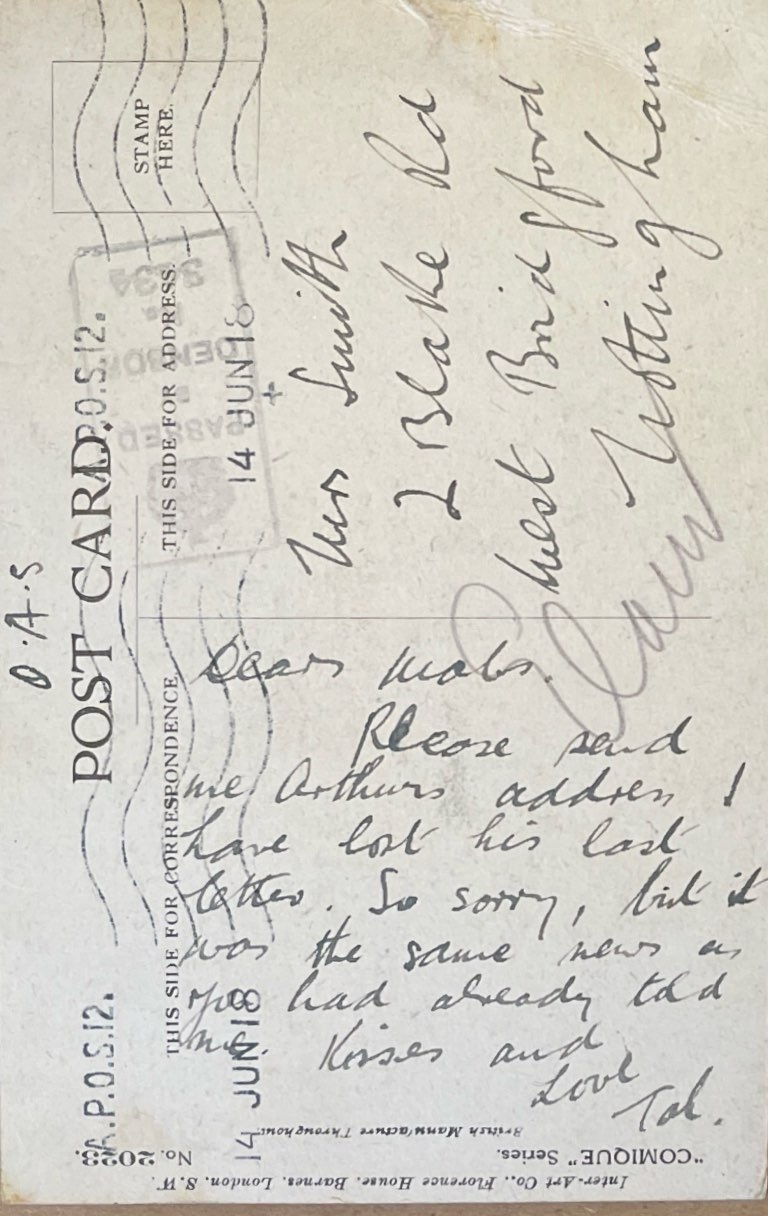 O.A.S
POST CARD.
THIS SIDE FOR CORRESPONDENCE.
THIS SIDE FOR ADDRESS.
STAMP
HERE.
A.P.O.S.12.
14 JUN 18
P.O.S.12.
14 JUN 18
PASSED
CENSOR
Dear Mabs.
Please send
me Arthurs address I
have lost his last
letter. So sorry, but it
was the same news as
you had already told
me. Kisses and
Love
Mrs Smith
2 Blake Rd
West Bridgford
Nottingham
"COMIQUE" Series.
No. 2023.
Inter-Art Co., Florence House, Barnes, London, S.W.
British Manufacture Throughout